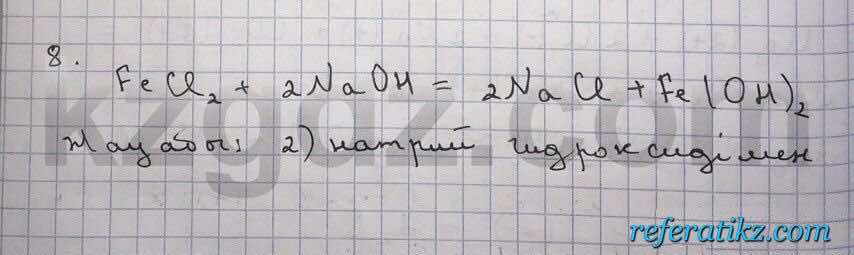 8.
FeCl₂ + 2NaOH = 2NaCl + Fe(OH)₂
Жауабы: 2) натрий гидроксидімен
kzgdz.com
referatikz.com